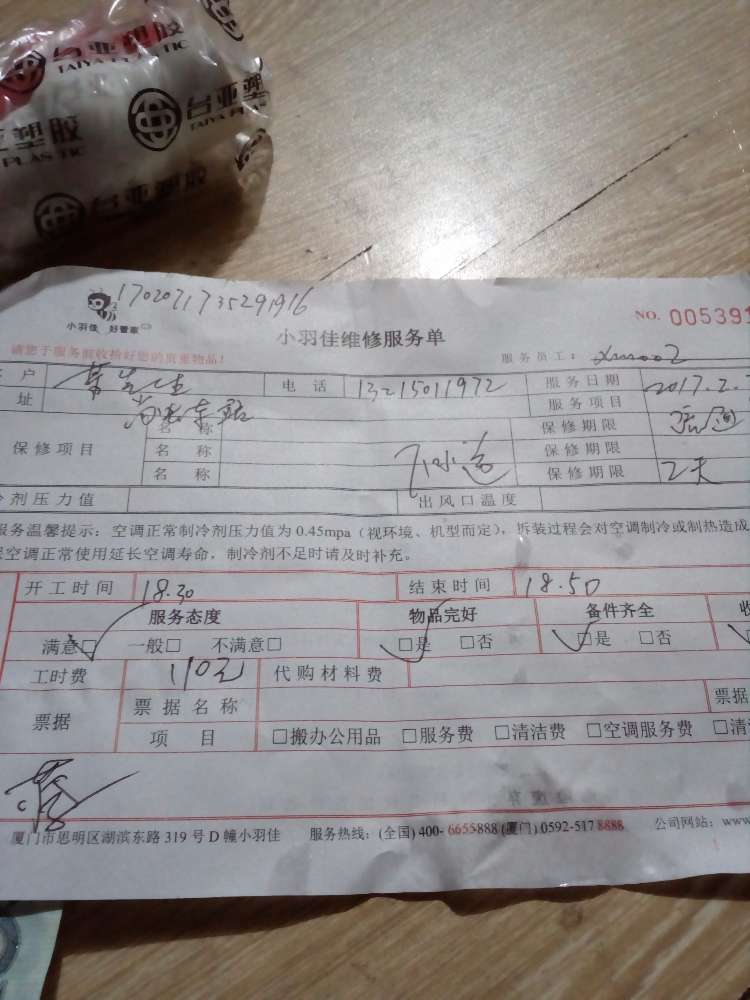 台亚塑胶
TAIYA PLASTIC
台亚塑
TAIYA PLAS
塑胶
PLASTIC
台亚塑胶
1702071735291916
小羽佳 好管家
小羽佳维修服务单
NO. 005391
请您于服务前收拾好您的贵重物品!
服务员工: xm002
户
电 话 13215011972 服务日期 2017.2.
址
服务项目
保修项目 名 称 保修期限
名 称 保修期限
名 称 保修期限 2天
剂压力值 出风口温度
服务温馨提示: 空调正常制冷剂压力值为 0.45mpa (视环境、机型而定), 拆装过程会对空调制冷或制热造成
空调正常使用延长空调寿命, 制冷剂不足时请及时补充。
开工时间 18.30 结束时间 18.50
服务态度 物品完好 备件齐全 收
满意□ 一般□ 不满意□ □是 □否 □是 □否
工时费 110元 代购材料费
票据 票据名称 票据
项 目 □搬办公用品 □服务费 □清洁费 □空调服务费 □清
厦门市思明区湖滨东路 319 号 D 幢小羽佳 服务热线: (全国) 400-6655888 (厦门) 0592-5178888 公司网站: www